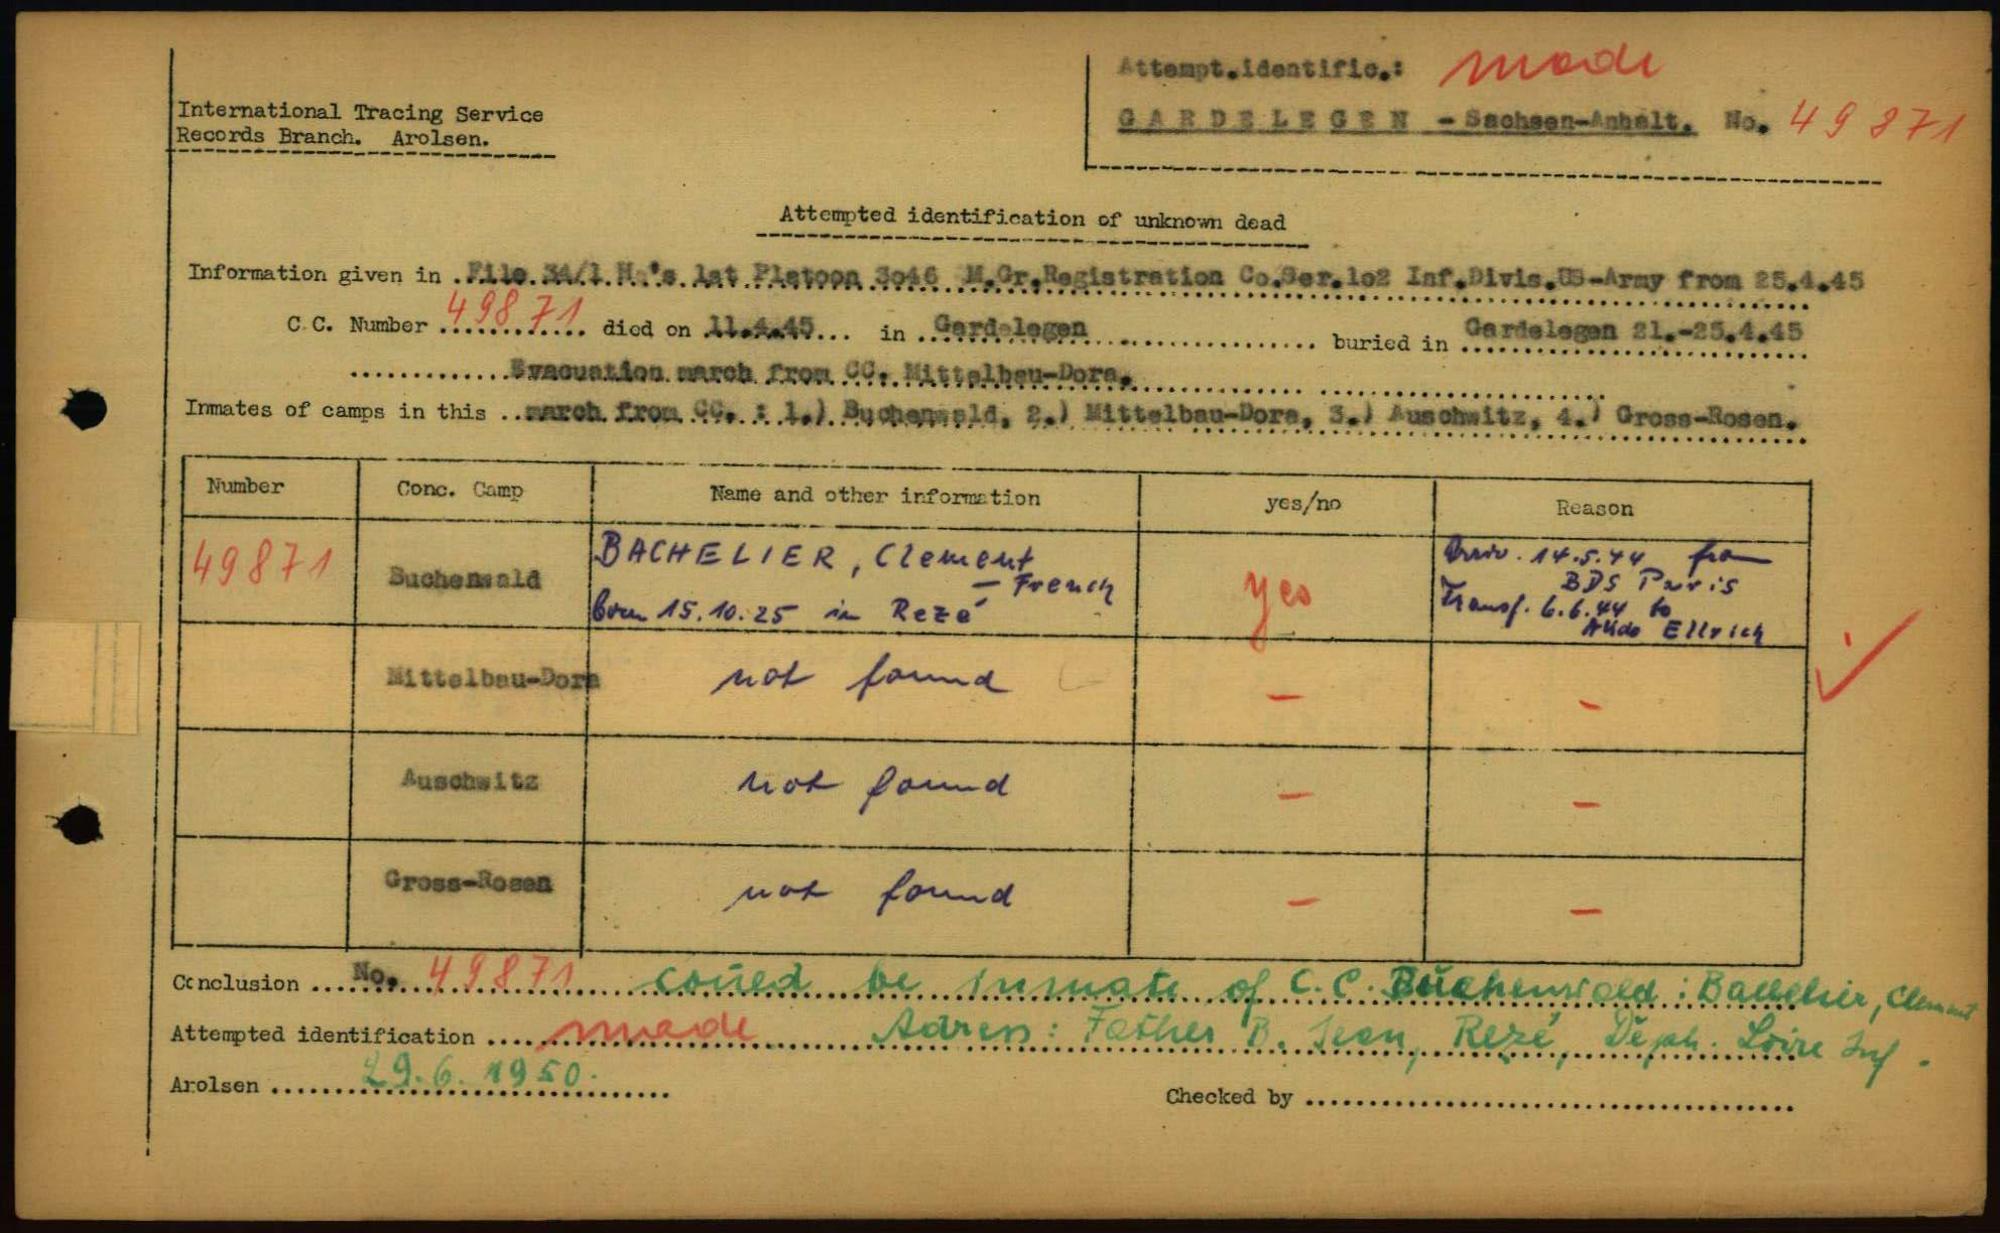 Attempt.identific.: made
International Tracing Service
Records Branch. Arolsen.
GARDELEGEN - Sachsen-Anhalt. No. 49871
Attempted identification of unknown dead
Information given in File 3A/1 Hq's 1st Platoon 3o46 M.Gr.Registration Co.Ser.1o2 Inf.Divis.US-Army from 25.4.45
C.C. Number 49871 died on 11.4.45 in Gardelegen buried in Gardelegen 21.-25.4.45
Evacuation march from CC. Mittelbau-Dora.
Inmates of camps in this march from CC. : 1.) Buchenwald, 2.) Mittelbau-Dora, 3.) Auschwitz, 4.) Gross-Rosen.
Number Conc. Camp Name and other information yes/no Reason
49871 Buchenwald BACHELIER, Clement – French born 15.10.25 in Rezé yes Arriv. 14.5.44 from BDS Paris Transf. 6.6.44 to Ellrich
Mittelbau-Dora not found – –
Auschwitz not found – –
Gross-Rosen not found – –
Conclusion No. 49871 could be inmate of C.C. Buchenwald: Bachelier, Clement
Attempted identification made Adress: Father B. Jean, Rezé, Deph. Loire Inf.
Arolsen 29.6.1950.
Checked by